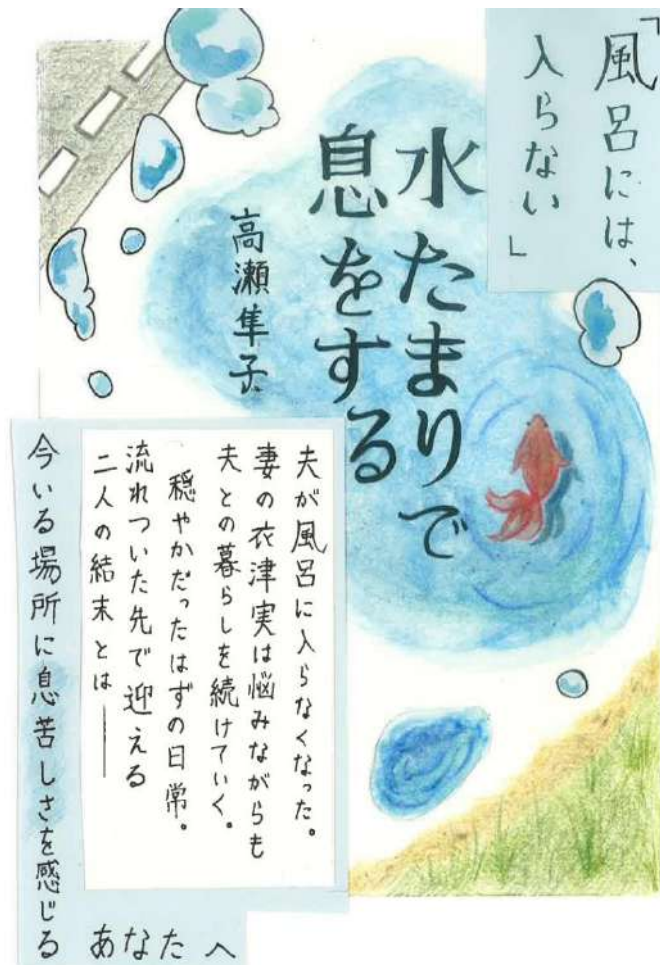 「風呂には、
入らない」
水たまりで
息をする
高瀬隼子
夫が風呂に入らなくなった。
妻の衣津実は悩みながらも
夫との暮らしを続けていく。
穏やかだったはずの日常。
流れついた先で迎える
二人の結末とは――
今いる場所に息苦しさを感じる
あなたへ